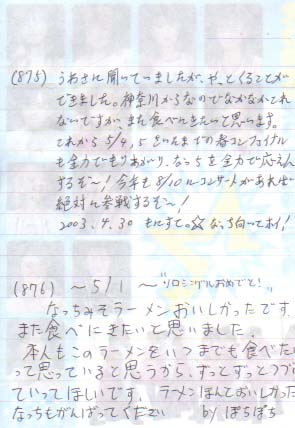 (875) うわさに聞いていましたが、やっとくることが
できました。神奈川からなのでなかなかこれ
ないですが、また食べにきたいと思います。
これから5/4,5さいたまでの春コンファイナル
も全力でもりあがり、なっちを全力で応えん
するぞ～!今年も8/10にコンサートがあれば
絶対に参戦するぞ～!
2003.4.30 もにすと。☆なっち向いてホイ!
(876) ～5/1～"ソロシングルおめでと!"
なっちみそラーメンおいしかったです。
また食べにきたいと思いました。
本人もこのラーメンをいつまでも食べたい
って思っていると思うから、ずっとずっとつづけ
ていってほしいです。ラーメンほんとおいしかった
なっちもがんばってください by ぽちぽち